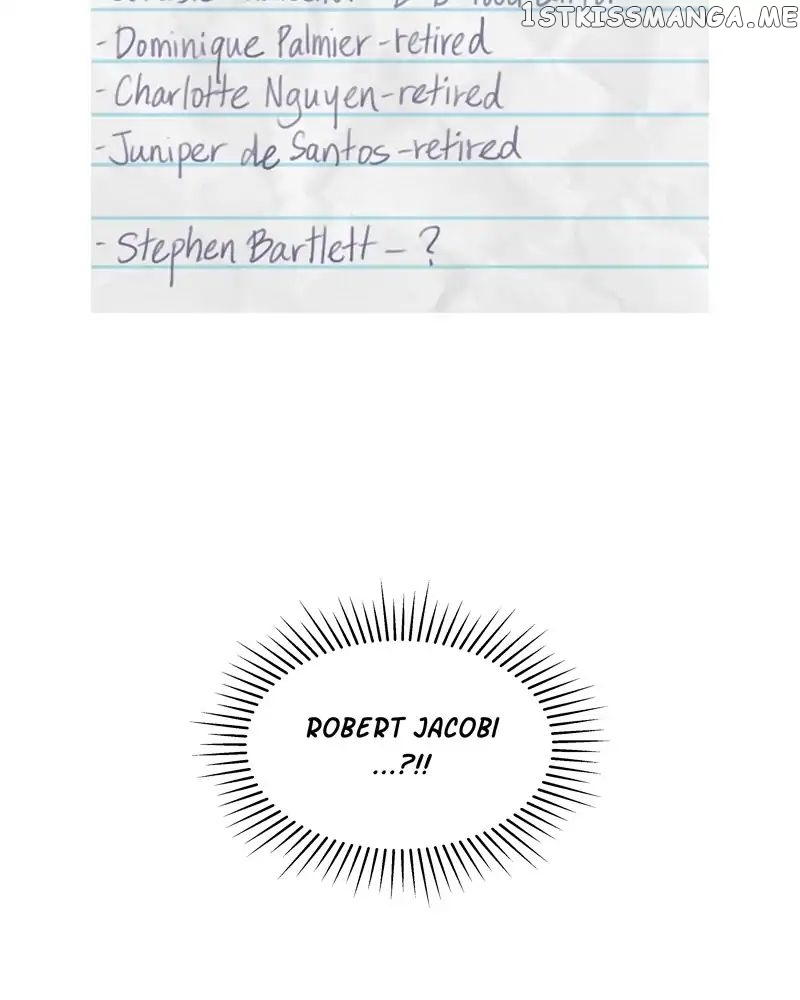 1STKISSMANGA.ME
- Dominique Palmier - retired
- Charlotte Nguyen - retired
- Juniper de Santos - retired
- Stephen Bartlett - ?
ROBERT JACOBI
...?!!